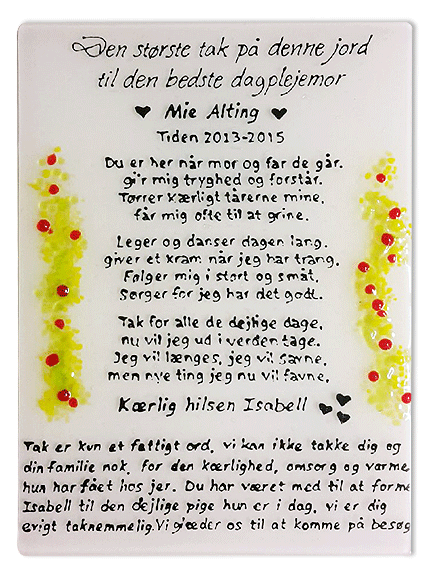 Den største tak på denne jord
til den bedste dagplejemor
Mie Alting
Tiden 2013-2015
Du er her når mor og far de går.
gi'r mig tryghed og forstår.
Tørrer kærligt tårerne mine,
får mig ofte til at grine.
Leger og danser dagen lang.
giver et kram når jeg har trang.
Følger mig i stort og småt,
sørger for jeg har det godt.
Tak for alle de dejlige dage,
nu vil jeg ud i verden tage.
Jeg vil længes, jeg vil savne,
men nye ting jeg nu vil favne.
Kærlig hilsen Isabell
Tak er kun et fattigt ord, vi kan ikke takke dig og
din familie nok, for den kærlighed, omsorg og varme
hun har fået hos jer. Du har været med til at forme
Isabell til den dejlige pige hun er i dag, vi er dig
evigt taknemmelig. Vi glæder os til at komme på besøg